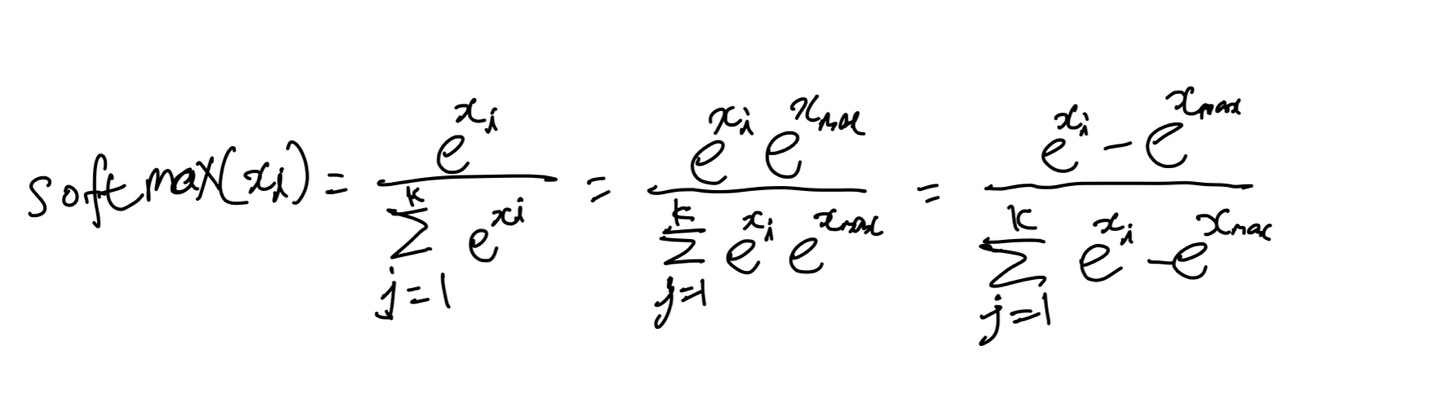 softmax(x_i) = \frac{e^{x_i}}{\sum_{j=1}^{k} e^{x_i}} = \frac{e^{x_i} e^{x_{max}}}{\sum_{j=1}^{k} e^{x_i} e^{x_{max}}} = \frac{e^{x_i} - e^{x_{max}}}{\sum_{j=1}^{k} e^{x_i} - e^{x_{max}}}